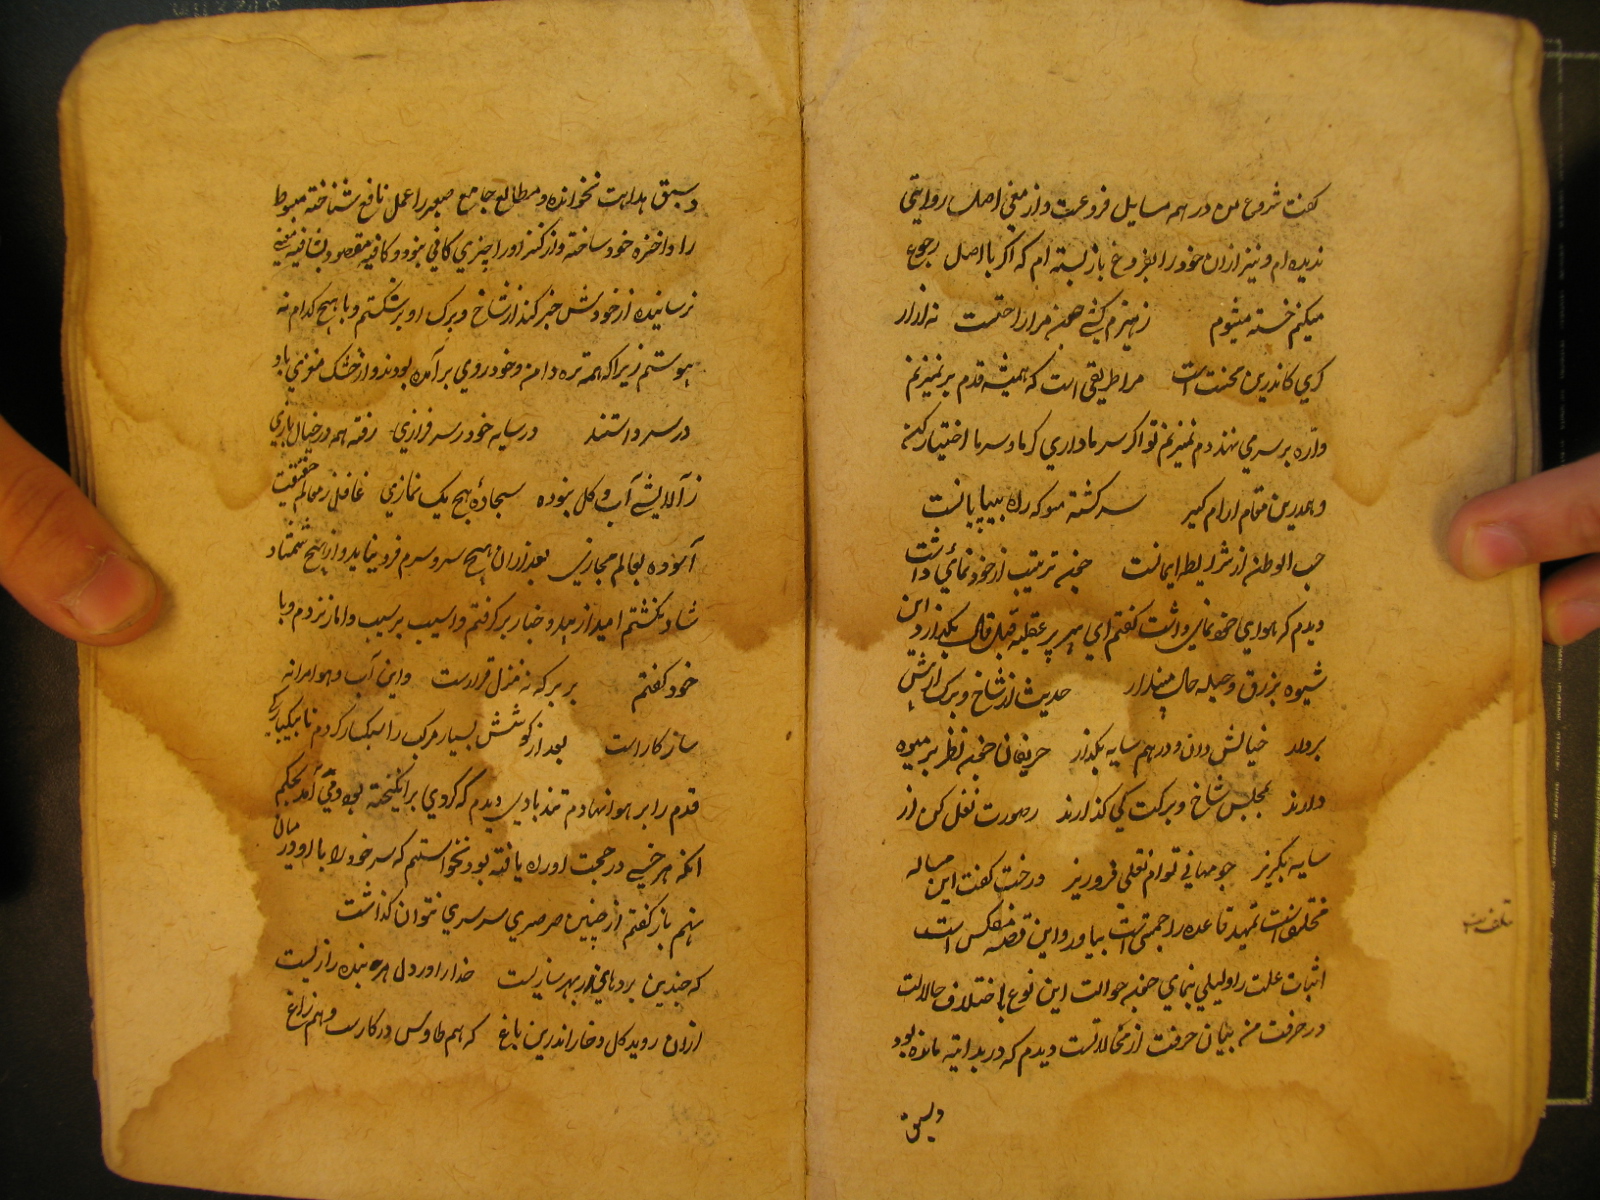 کفت شروع من در هم مسایل فروعست و از مفی اصل روایتی
ندیده ام و نیز ازان خود را بفروغ باز بسته ام که اکر با اصل رجوع
میکنم خسته میشوم ز هیزم کشی مرا راحتست نه از ار
کری کاندرین محنت است مرا طریقی است که همیشه قدم بر نمیزنم
واره بر سر می نهند دم نمیزنم تو اکر سر ما داری کرما و سرما اختیار کن
و همدرین مقام ارام کیر سر کشته مو که راه بیابانست
حب الوطن از شرایط ایمانست چو ترتیب از خودنمائی داشت
دیدم که هوای خودنمایی داشت کفتم ای پیر عقیله قیل و قال بکذار و این
شیوه بزرق و حیله حال مپندار حدیث از شاخ و برک ارزش
برواد خیالش دان و در هم سایه بکذار حریفان چو نظر بر میوه
دارند بمجلس شاخ و برکت کی کذارند رصورت نقل کن از
سایه بکریز چو مهمانی توام نقلی فروریز درخت کفت این مساله
مختلف است تمهید قاعده را حجتی بیاور و این قصه منعکس است
اثبات علت را دلیلی بنمای چو حوالت این نوع با ختلاف حالات
در حرفت من بیان حرفت از محالاتست دیدم که در بدایه مانده بود
و سبق
و سبق هدایت نخوانده و مطالع جامع صغیر را عمل نافع شناخته مبسوط
را واخره خود ساخته و از کنز او را چیزی کافی نبود و کافیه مقصود بشافیه
نرسانیده از خودش خبر کند از شاخ و برک او بر شکستم و با هیچ کدام نه
پیوستم زیرا که همه تره دامن و خودروی بر آمده بودند و از خشک مغزی باد
در سر داشتند در سایه خود ز سر فرازی رفته همه در خیال بازی
ز آلایش آب و کل نبوده سجاده هیچ یک نمازی غافل ز معالم حقیقت
آسوده بعالم مجازی بعد ازان بهیچ سرو سرم فرو نیاید و از هیچ شمشاد
شاد نکشتم امید از بید و خیار بر کرفتم و اسیب بر سیب و انار نزدم و با
خود کفتم بر بر که نه منزل قرارست و این آب و هوا مرا نه
ساز کارست بعد از کوشش بسیار مرکب را سبکسار کردم تا بیکبار کی
قدم را بر هوا نهادم تند بادی دیدم که کردی بر انکیخته بود وقتی آمد بحکم
انکه هر خسی در حجت او راه یافته بود نخواستم که سر خود را با او در میان
نهم باز کفتم از چنین صرصری سرسری نتوان کذاشت
که چندین بردهای از بهر سازیست خدا را در دل هر بنده رازیست
ازان روید کل و خار اندرین باغ که هم طاوس در کارست و هم زاغ